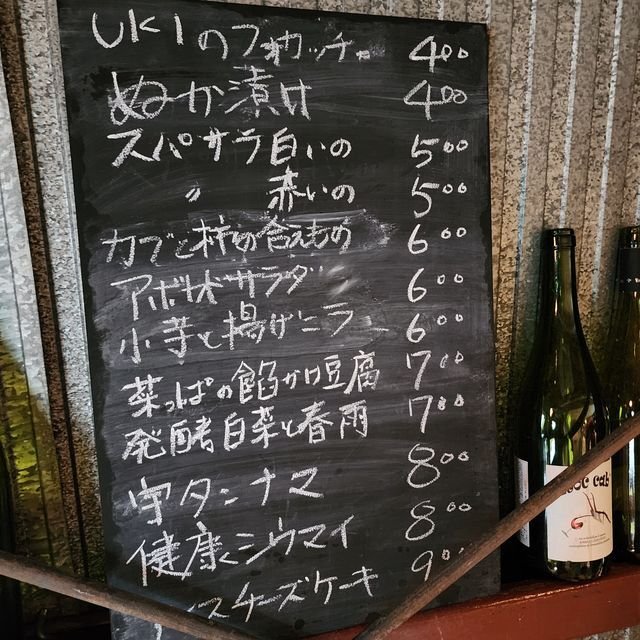 UKIのフォカッチャ 400
ぬか漬け 400
スパサラ白いの 500
〃 赤いの 500
カブと柿の合えもの 600
アボ伏サラダ 600
小芋と揚げニラ 600
菜っぱの餡かけ豆腐 700
発酵白菜と春雨 700
タンナマ 800
健康シウマイ 800
スチーズケーキ 900